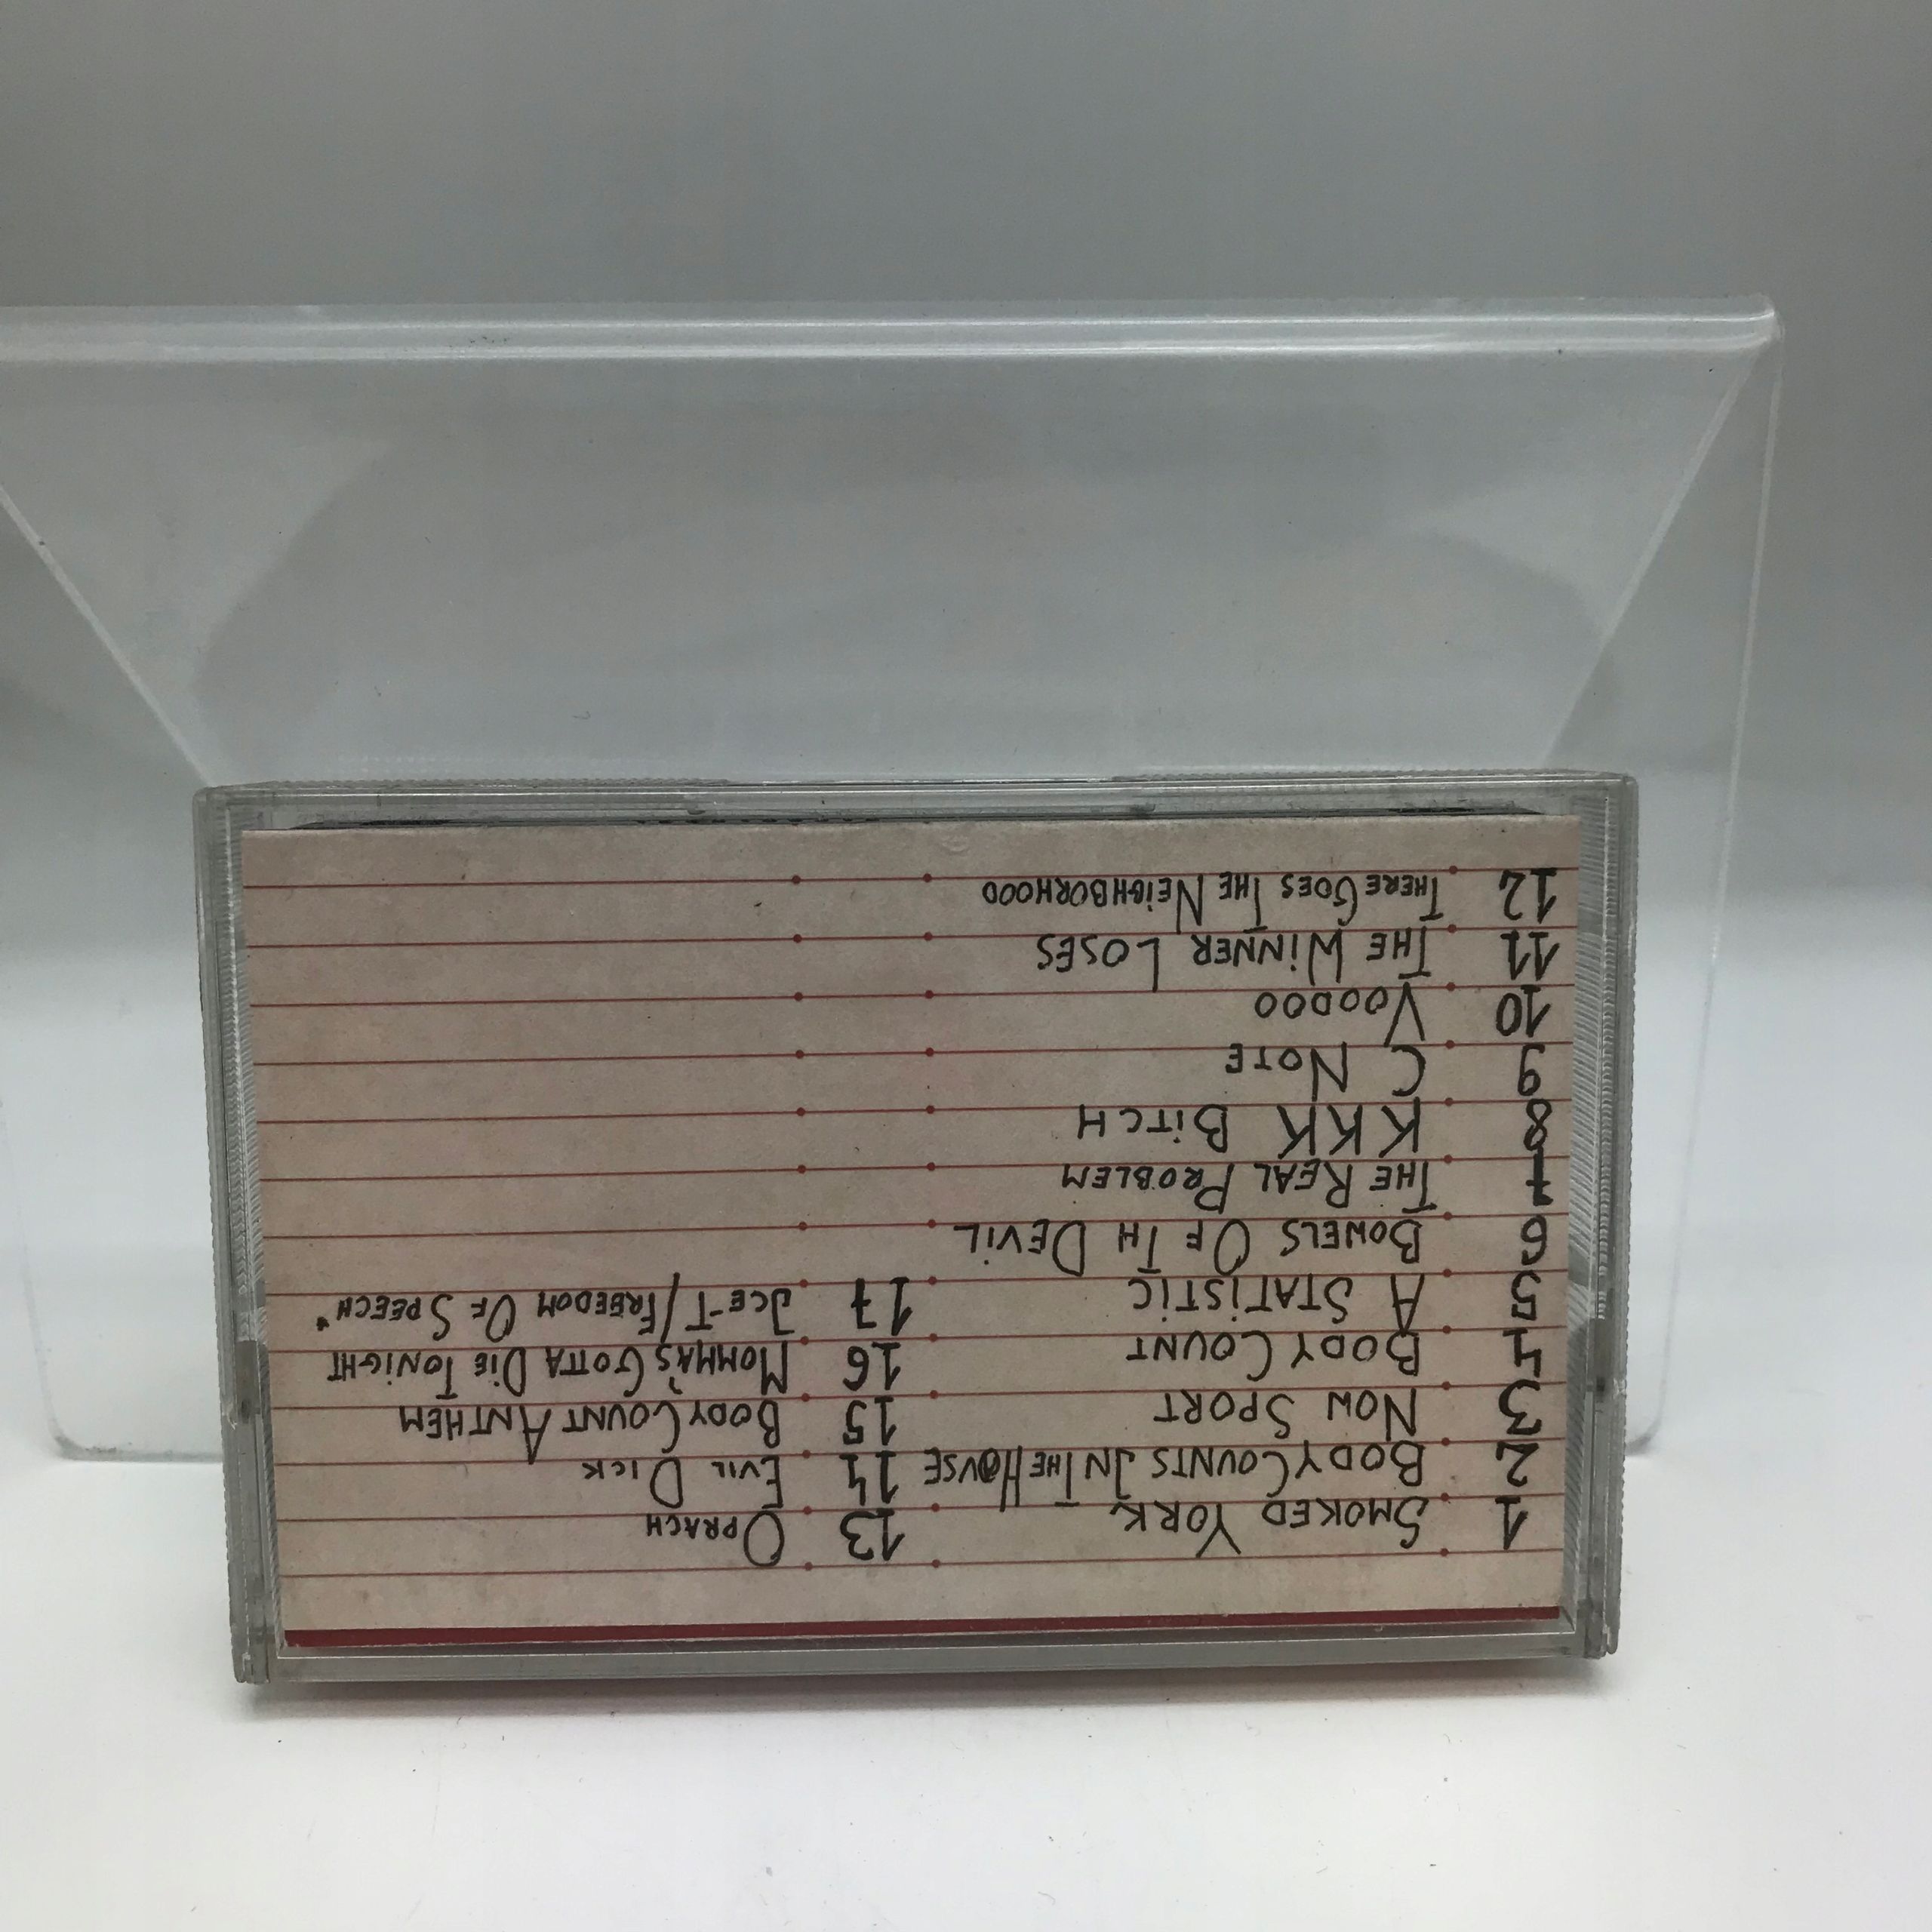 1 SMOKED YORK
2 BODY COUNTS IN THE HOUSE
3 NOW SPORT
4 BODY COUNT
5 A STATISTIC
6 BOWELS OF TH DEVIL
7 THE REAL PROBLEM
8 KKK BITCH
9 C NOTE
10 VOODOO
11 THE WINNER LOSES
12 THERE GOES THE NEIGHBORHOOD
13 OPRACH
14 EVIL DICK
15 BODY COUNT ANTHEM
16 MOMMA'S GOTTA DIE TONIGHT
17 ICE-T/FREEDOM OF SPEECH*